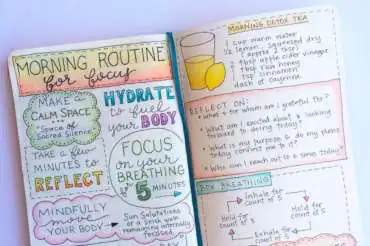 MORNING ROUTINE
for focus
MAKE A
CALM SPACE
"Space of
Sacred Silence"
HYDRATE
to fuel
your BODY
TAKE A FEW
MINUTES TO
REFLECT
FOCUS
ON your
BREATHING
5 MINUTES
MINDFULLY
move
YOUR BODY
Sun Salutations
or a brisk walk
remaining internally
focused
MORNING DETOX TEA
1 cup warm water
1/2 lemon, squeezed dry
1 apple
1 tbsp apple cider vinegar
1 tbsp raw honey
1 tsp cinnamon
dash of cayenne
REFLECT ON:
• What + for whom am I grateful for?
• What am I excited about & looking
forward to doing today?
• What is my purpose & do my plans
today connect me to it?
• Who can I reach out to & today?
BOX BREATHING
Inhale for
count of 5
Hold for
count of 5
Hold for
count of 5
Exhale for
count of 5